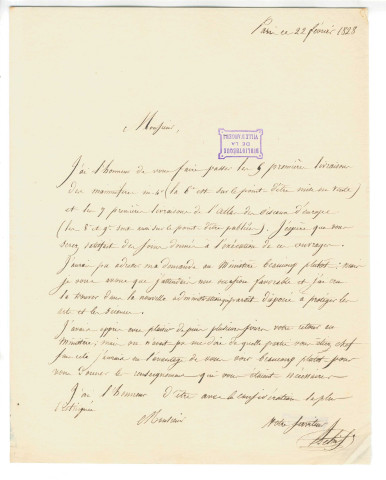 Paris ce 22 février 1828
Monsieur,
BIBLIOTHEQUE
DE LA
VILLE D'ANGERS
J'ai l'honneur de vous faire passer les 5 première livraison
des mammifères in 4° (la 6e est sur le point d'être mise en vente)
et les 7 première livraisons de l'atlas des oiseaux d'europe
(les 8 et 9e sont sur le point d'être publiées). J'espère que vous
serez satisfait des soins donnés à l'exécution de ces ouvrages.
J'aurais pu adresser ma demande au Ministère beaucoup plutôt; mais
je vous avoue que j'attendais une occasion favorable et j'ai cru
la trouver dans la nouvelle administration disposée à protéger les
arts et les sciences.
J'avais appris avec plaisir depuis plusieurs jours votre retour au
Ministère; mais on n'avait pu me dire de quelle partie vous étiez chef
sans cela j'aurais eu l'avantage de vous voir beaucoup plutôt pour
vous donner les renseignemens qui vous étaient nécessaires
J'ai l'honneur d'être avec la considération la plus
distinguée
Monsieur
Votre serviteur